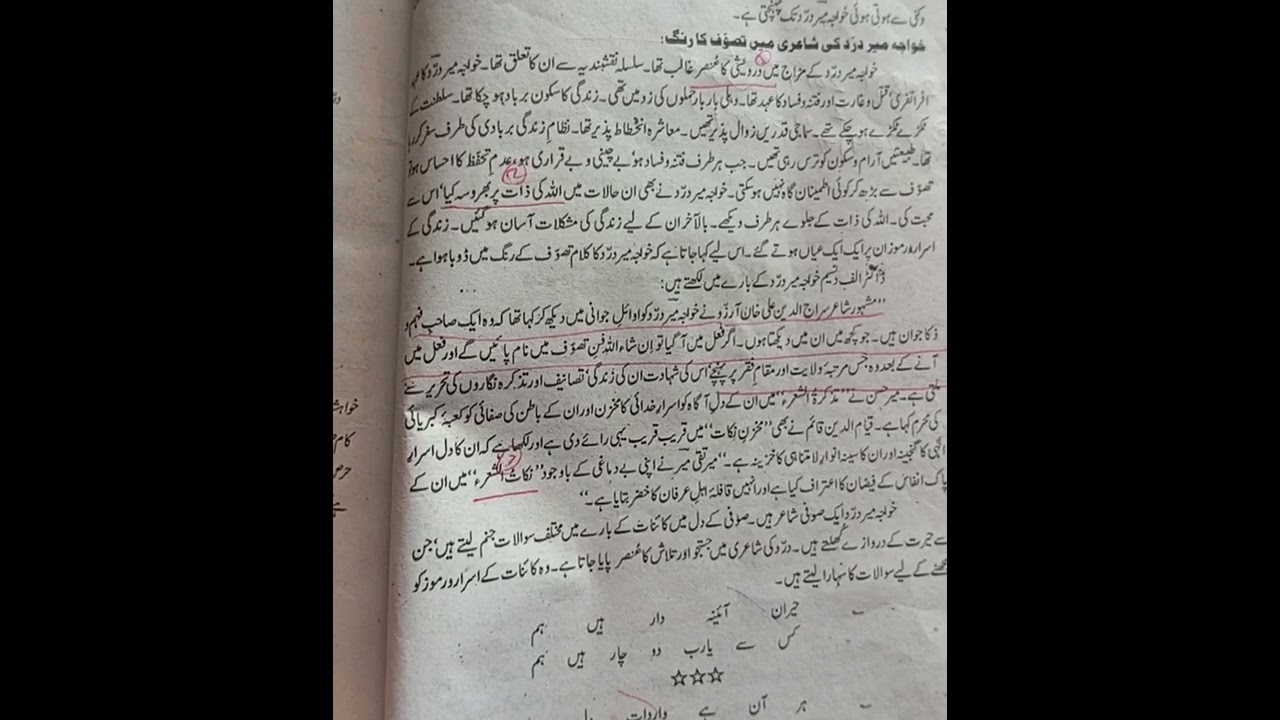 وکنی سے ہوتی ہوئی خواجہ میر درد تک پہنچتی ہے۔
خواجہ میر درد کی شاعری میں تصوف کا رنگ:
خواجہ میر درد کے مزاج میں درویشی کا عنصر غالب تھا۔ سلسلہ نقشبندیہ سے ان کا تعلق تھا۔ خواجہ میر درد کا عہد
افراتفری، قتل و غارت اور فتنہ و فساد کا عہد تھا۔ دہلی بار بار حملوں کی زد میں تھی۔ زندگی کا سکون برباد ہو چکا تھا۔ سلطنت کے
ٹکڑے ٹکڑے ہو چکے تھے۔ سماجی قدریں زوال پذیر تھیں۔ معاشرہ انحطاط پذیر تھا۔ نظامِ زندگی بربادی کی طرف سفر کر رہا
تھا۔ طبیعتیں آرام و سکون کو ترس رہی تھیں۔ جب ہر طرف فتنہ و فساد ہو، بے چینی و بے قراری ہو، عدم تحفظ کا احساس ہو تو
تصوف سے بڑھ کر کوئی اطمینان گاہ نہیں ہو سکتی۔ خواجہ میر درد نے بھی ان حالات میں اللہ کی ذات پر بھروسہ کیا، اس سے
محبت کی۔ اللہ کی ذات کے جلوے ہر طرف دیکھے۔ بالآخر ان کے لیے زندگی کی مشکلات آسان ہو گئیں۔ زندگی کے
اسرار و رموز ان پر ایک ایک عیاں ہوتے گئے۔ اس لیے کہا جاتا ہے کہ خواجہ میر درد کا کلام تصوف کے رنگ میں ڈوبا ہوا ہے۔
ڈاکٹر الف د نسیم خواجہ میر درد کے بارے میں لکھتے ہیں:
"مشہور شاعر سراج الدین علی خان آرزو نے خواجہ میر درد کو اوائل جوانی میں دیکھ کر کہا تھا کہ وہ ایک صاحبِ فہم و
ذکا جوان ہیں۔ جو کچھ میں ان میں دیکھتا ہوں۔ اگر فعل میں آ گیا تو ان شاء اللہ فنِ تصوف میں نام پائیں گے اور فعل میں
آنے کے بعد وہ جس مرتبۂ ولایت اور مقامِ فقر پر پہنچے، اس کی شہادت ان کی زندگی، تصانیف اور تذکرہ نگاروں کی تحریر سے
ملتی ہے۔ میر حسن نے "تذکرۃ الشعرء" میں ان کے دلِ آگاہ کو اسرارِ خدائی کا مخزن اور ان کے باطن کی صفائی کو کعبۂ کبریائی
کی محرم کہا ہے۔ قیام الدین قائم نے بھی "مخزنِ نکات" میں قریب قریب یہی رائے دی ہے اور لکھا ہے کہ ان کا دل اسرارِ
الٰہی کا گنجینہ اور ان کا سینہ انوارِ لامتناہی کا خزینہ ہے۔" میر تقی میر نے اپنی بے دماغی کے باوجود "نکات الشعرء" میں ان کے
پاک انفاس کے فیضان کا اعتراف کیا ہے اور انہیں قافلۂ اہلِ عرفان کا خضر بتایا ہے۔"
خواجہ میر درد ایک صوفی شاعر ہیں۔ صوفی کے دل میں کائنات کے بارے میں مختلف سوالات جنم لیتے ہیں، جن
سے حیرت کے دروازے کھلتے ہیں۔ درد کی شاعری میں جستجو اور تلاش کا عنصر پایا جاتا ہے۔ وہ کائنات کے اسرار و رموز کو
سمجھنے کے لیے سوالات کا سہارا لیتے ہیں۔
حیران آئینہ دار ہیں ہم
کس سے یارب دو چار ہیں ہم
☆☆☆
ہر آن ہے واردات دل
خواہش
کام
حرص
ہے